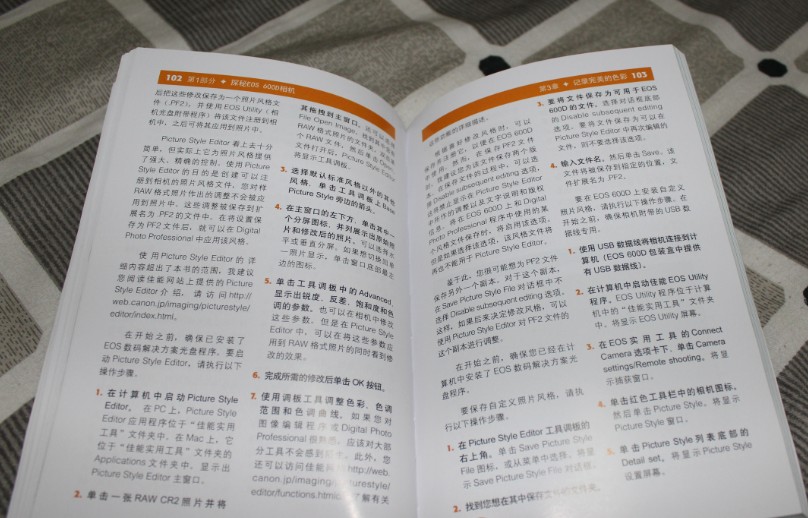 102 第1部分 ◆ 探秘EOS 600D相机
后把这些修改保存为一个照片风格文
件（.PF2），并使用EOS Utility（相
机光盘附带程序）将该文件注册到相
机中，之后可将其应用到照片中。
Picture Style Editor 看上去十分
简单，但实际上它为照片风格提供
了强大、精确的控制。使用 Picture
Style Editor 的目的是创建可以注
册到相机的照片风格文件。您对样
RAW 格式照片作出的调整不会被应
用到照片中，这些调整被保存到扩
展名为 .PF2的文件中。在将设置保
存为.PF2文件后，就可以在 Digital
Photo Professional 中应用该风格。
使用 Picture Style Editor 的详
细内容超出了本书的范围，我建议
您阅读佳能网站上提供的 Picture
Style Editor 介绍，请访问 http://
web.canon.jp/imaging/picturestyle/
editor/index.html。
在开始之前，确保已安装了
EOS 数码解决方案光盘程序。要启
动 Picture Style Editor，请执行以下
操作步骤。
1. 在计算机中启动 Picture Style
Editor。 在 PC上，Picture Style
Editor 应用程序位于“佳能实用
工具”文件夹中。在 Mac 上，它
位于“佳能实用工具”文件夹的
Applications 文件夹中。显示出
Picture Style Editor 主窗口。
2. 单击一张RAW CR2 照片并将
其拖拽到主窗口。
File Open Image，
RAW 格式照片的文件夹，
个 RAW 文件，然后单击 Open。
文件打开后，Picture Style Editor
将显示工具调板。
3. 选择默认标准风格以外的其他
风格，单击工具调板上 Base
Picture Style 旁边的箭头。
4. 在主窗口的左下方，单击其中一
个分屏图标，并列展示出原始照
片和修改后的照片。可以选择水
平或垂直分屏。如果想切换回单
一照片显示，单击窗口底部的最左
边的图标。
5. 单击工具调板中的 Advanced，
显示出锐度、反差、饱和度和色
调的参数。也可以在相机中修改
这些参数，但是在 Picture Style
Editor 中，可以在将这些参数应
用到 RAW 格式照片的同时看到修
改的效果。
6. 完成所需的修改后单击 OK 按钮。
7. 使用调板工具调整色彩、色调
范围和色调曲线。如果您对
图像编辑程序或 Digital Photo
Professional 很熟悉，应该对大部
分工具不会感到陌生。此外，您
还可以访问佳能网站 http://web.
canon.jp/imaging/picturestyle/
editor/functions.html，了解有关
第3章 ◆ 记录完美的色彩 103
这些功能的详细描述。
Photo Professional 程序中使用的某
个风格文件保存时，将启用该选项。
但是如果选择该选项，该风格文件将
再也不能用于 Picture Style Editor。
鉴于此，您很可能想为 PF2 文件
保存另一个副本。对于这个副本，
在 Save Picture Style File 对话框中不
选择 Disable subsequent editing 选项，
这样，如果后来决定修改风格，可以
使用 Picture Style Editor 对 PF2 文件的
这个副本进行调整。
在开始之前，确保您已经在计
算机中安装了EOS 数码解决方案光
盘程序。
要保存自定义照片风格，请执
行以下操作步骤。
1. 在 Picture Style Editor 工具调板的
右上角，单击 Save Picture Style
File 图标，或从菜单中选择，将显
示 Save Picture Style File 对话框。
2. 找到您想在其中保存文件的文件夹。
3. 要将文件保存为可用于EOS
600D 的文件，选择对话框底部
的 Disable subsequent editing
选项。要将文件保存为可以在
Picture Style Editor 中再次编辑的
文件，则不要选择该选项。
4. 输入文件名，然后单击 Save。该
文件将被保存到指定的位置，文
件扩展名为 PF2。
要在 EOS 600D 上安装自定义
照片风格，请执行以下操作步骤。在
开始之前，确保相机附带的 USB 数
据线专用。
1. 使用 USB 数据线将相机连接到计
算机（EOS 600D 包装盒中提供
有 USB 数据线）。
2. 在计算机中启动佳能 EOS Utility
程序。EOS Utility 程序位于计算
机中的“佳能实用工具”文件夹
中，将显示 EOS Utility 屏幕。
3. 在EOS 实用工具的Connect
Camera 选项卡下，单击 Camera
settings/Remote shooting，将显
示捕获窗口。
4. 单击红色工具栏中的相机图标，
然后单击 Picture Style，将显示
Picture Style 窗口。
5. 单击 Picture Style 列表底部的
Detail set，将显示 Picture Style
设置屏幕。